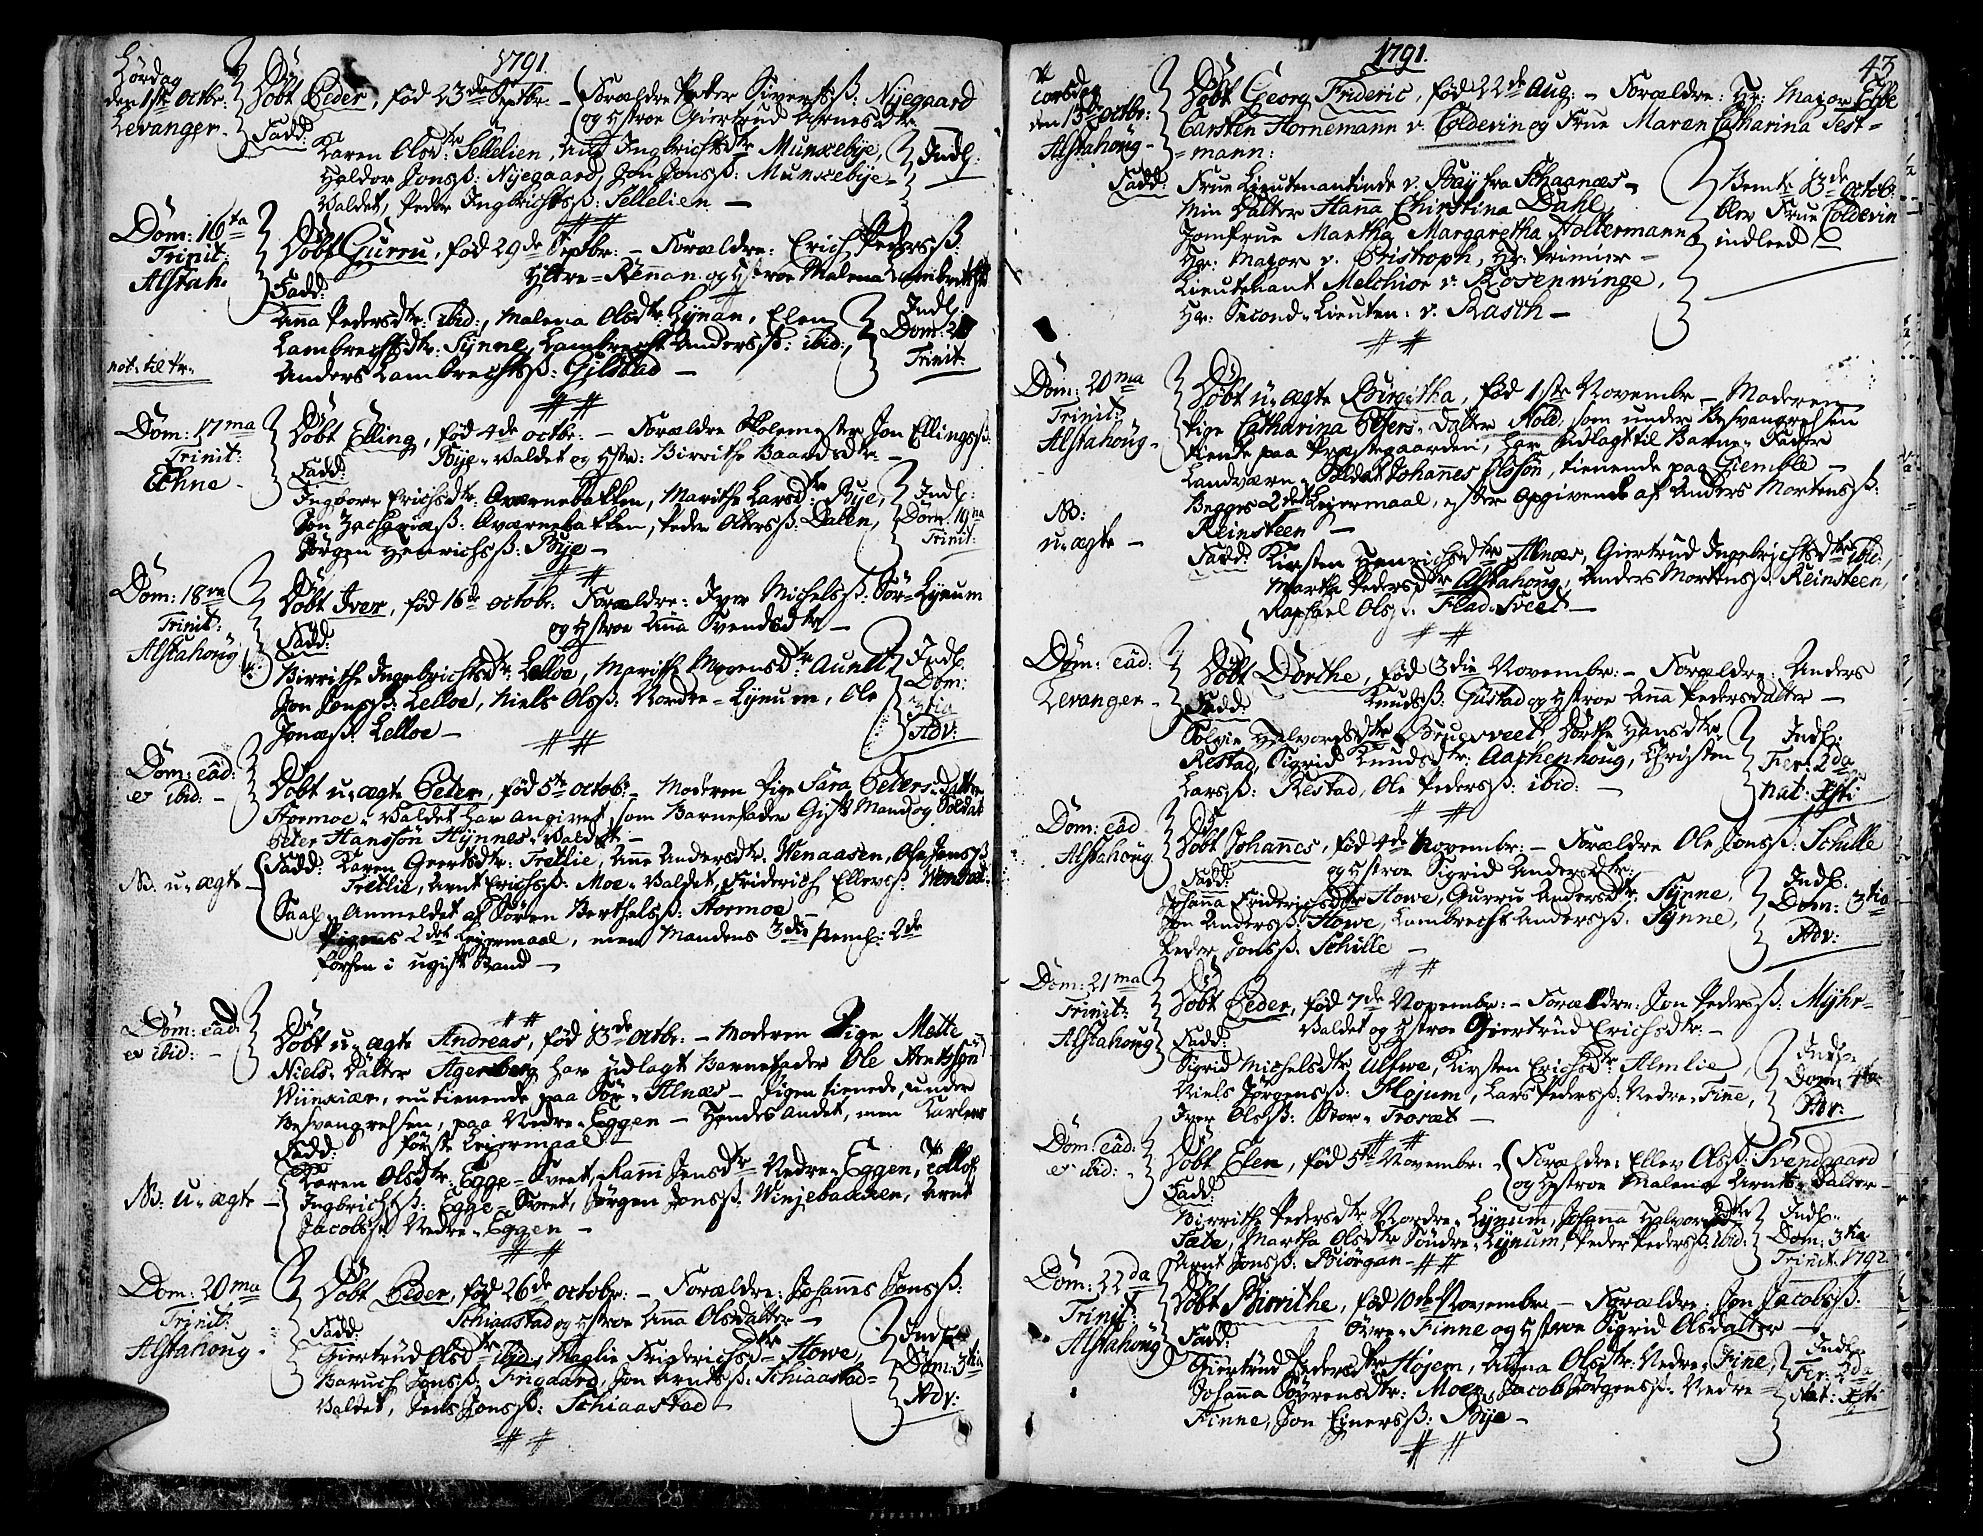 1791.
Lördag
den 1ste Octbr:
Levanger.
Döbt Peder, föd 23de Septbr. — Forældre Peter Sivertsß: Nÿegaard
og Hstroe Giertrud Arnesdtr.
Fadd:
Karen Olsdtr: Sellelien, Ane Ingbrichtsdtr Munkebÿe,
Haldor Jonsß: Nÿegaard, Jon Jonsß: Munkebÿe-
Valdet, Peder Ingbrichtsß: Sellelien. —
Indl:
Dom: 16ta
Trinit:
Alstah.
Döbt Gurru, föd 29de Septbr: — Forældre: Erich Pedersß:
Ÿttre-Rennan og Hstroe Malena Lambrechtsdtr
Fadd:
Anna Pedersdtr: ibid:, Malena Olsdtr Lÿnan, Elen
Lambrechtsdtr: Sÿnne, Lambrecht Andersß: ibid:,
Anders Lambrechtsß: Gilstad —
Indl:
Dom: 20
Trinit:
not: til tr.
Dom: 17ma
Trinit:
Echne
Döbt Elling, föd 4de octbr: — Forældre Skolemester Jon Ellingsß:
Bÿe-Valdet og Hstr: Birrithe Baardsdtr —
Fadd:
Ingbor Erichsdtr: Qværnebakken, Marithe Larsdtr: Bÿe,
Jon Zachariæß: Qværnebakken, Peder Olsß: Dalen,
Jörgen Henrichsß: Bÿe —
Indl:
Dom: 19na
Trinit:
Dom: 18va
Trinit:
Alstahoug
Döbt Iver, föd 16de octobr: Forældre: Iver Michelsß: Sör-Lÿnum
og Hstroe Anna Svendsdtr —
Fadd:
Birrithe Ingebrichtsdtr: Lelloe, Marith Mogensdtr: Aunet
Jon Jonsß: Lelloe, Niels Olsß: Nordre-Lÿnum, Ole
Jonsß: Lelloe —
Indl:
Dom:
3tia
Adv:
Dom: eâd:
et ibid: —
Döbt u-ægte Peter, föd 5te octobr: — Moderen Pige Sara Peters-Datter
Stormoe-Valdet har angivet, som Barnefader Gift Mand og Soldat
Peter Hanssön Hÿnnes-Valdet —
NB. u-ægte
Fadd: Karen Geertsdtr: Tretlie, Ane Andersdtr: Wenaasen, Ole Jensß
Tretlie, Arnt Erichsß: Moe-Valdet, Friderich Ellevsß: Wennes:
Saal. Anmeldet af Sören Berthelsß: Stormoe —
Pigens 2det Leiermaal, men Mandens 3die nemlig: 2de
forhen i ugift Stand —
Dom: eâd:
et ibid: —
Döbt u-ægte Andreas, föd 13de octbr. — Moderen Pige Mette
Niels-Datter Agerberg har udlagt Barnefader Ole Arntssön
Wiinkiær, nu tienende paa Sör-Alnæs — Pigen tienede, under
Besvangrelsen, paa Nedre-Eggen — Hendes andet, men Karlens
förste Leiermaal
NB. u-ægte —
Fadd:
Karen Olsdtr: Egge-Qvernt, Rami Jensdtr Nedre-Eggen, Tollef
Ingbrichtsß: Egge-Qvernt, Jörgen Jonsß: Winjebakken, Arnt
Jacobsß: Nedre-Eggen —
Dom: 20ma
Trinit:
Alstahoug
Döbt Peder, föd 26de octobr: — Forældre: Johannes Jonsß:
Schiaastad og Hstroe Anna Olsdatter —
Fadd:
Giertrud Olsdtr ibid, Maglie Friderichsdtr Howe,
Baruch Jonsß: Friggaard, Jon Arntsß: Schiaastad-
Valdet, Jens Jonsß: Schiaastad —
Indl:
Dom: 3tia
Adv:
1791.
43
Torsdag
den 13de octbr:
Alstahoug
Döbt Georg Frideric, föd 22de Aug: — Forældre: Hr: Major Ebbe
Carsten Hornemann v. Coldevin og Frue Maren Catharina Test-
mann:
Fadd:
Frue Lieutenantinde v. Bay fra Schaanæs —
Min Datter Hanna Christina Dahl,
Jomfrue Martha Margaretha Holtermann
Hr: Major v. Cristroph, Hr: Primier-
Lieutenant Melchior v. Rosenwinge,
Hr: Second-Lieuten: v. Krasth —
Bemte 13de octob:
blev Frue Coldevin
indleed
Dom: 20ma
Trinit:
Alstahoug
Döbt u-ægte Birgitha, föd 1ste Novembr — Moderen
Pige Catharina Peters-Datter Nold, som under Besvangrelsen
tiente paa Præstegaarden, har udlagt til Barne-Fader
Landværn-Soldat Johannes Olssön, tienende paa Giemble —
Begges 2det Leiermaal, efter Opgivende af Anders Mortensß:
Reinsteen —
NB:
u-ægte —
Fadd: Kirsten Henrichsdtr Alnæs, Giertrud Ingebrichtsdtr ibid:,
Marthe Pedersdtr Alstahoug, Anders Mortensß: Reinsteen,
Raphael Olsß: Flad-Sveet —
Dom: eâd:
Levanger
Döbt Dorthe, föd 3die Novembr: — Forældre: Anders
Knudsß: Gustad og Hstroe Anna Pedersdatter —
Fadd:
Solvie Halvorsdtr Bruusveet, Dorthe Hansdtr
Restad, Sigrid Knudsdtr: Aschenhoug, Christen
Larsß: Restad, Ole Pedersß: ibid: —
Indl:
Fer: 2da
Nat: Xsti
Dom: eâd
Alstahoug
Döbt Johannes, föd 4de Novembr: — Forældre Ole Jonsß: Schille
og Hstroe Sigrid Andersdtr:
Fadd:
Johanna Friderichsdtr Howe, Gurru Andersdtr: Sÿnne,
Jon Andersß: Howe, Lambrecht Andersß: Sÿnne,
Peder Jonsß: Schille —
Indl:
Dom: 3tia
Adv:
Dom: 21ma
Trinit:
Alstahoug
Döbt Peder, föd 7de Novembr: — Forældre: Jon Pedersß: Mÿhr-
Valdet og Hstroe Giertrud Erichsdtr: —
Fadd:
Sigrid Michelsdtr Ulfwe, Kirsten Erichsdtr: Almlie,
Niels Jörgensß: Hojum, Lars Pedersß: Nedre-Finne,
Iver Olsß: Stor-Troset —
Indl:
Dom: 4ta
Adv:
Dom: eâd:
et ibid: —
Döbt Elen, föd 5te Novembr: — Forældre: Ellev Olsß: Svendgaard
og Hstroe Malena Arnts-Datter —
Fadd:
Birrithe Pedersdtr Nordre-Lÿnum, Johanna Halvorsdtr
Sæte, Martha Olsdtr Söndre-Lÿnum, Peder Pedersß: ibid:
Arnt Jonsß: Biörgan —
Indl:
Dom: 3tia
Trinit: 1792
Dom: 22da
Trinit:
Alstahoug
Döbt Birrithe, föd 10de Novembr — Forældre Jon Jacobsß:
Övre-Finne og Hstroe Sigrid Olsdatter —
Fadd:
Giertrud Pedersdtr Höjem, Anna Olsdtr: Nedre-Finne,
Johanna Sörensdtr: Moe, Jacob Jörgensß: Nedre-
Finne, Jon Einersß: Bÿe —
Indl:
Fer: 2da
Nat: Xsti